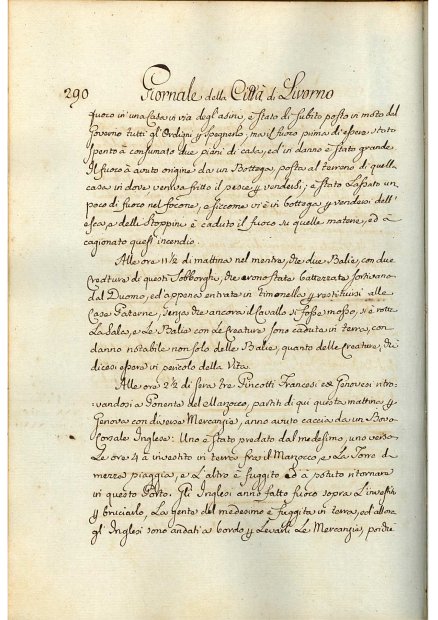 290 Giornale della Città di Livorno
fuoco in una Casa in via degl'asini, è stato di subito posto in moto dal
Governo tutti gl'Ordigni p spegnerlo, ma il fuoco prima di essere stato
spento à consumato due piani di casa, ed in danno è stato grande
Il fuoco à avuto origine da un Bottega, posta al terreno di quella
casa in dove veniva fatto il pesce p venderlo; è stato Lassato un
poco di fuoco nel focone, e siccome vi è in bottega p vendersi dell'
esca, e delle stoppine è caduto il fuoco su quelle materie, ed à
cagionato quest'incendio.
Alle ore 11½ di mattina nel mentre, che due Balie, con due
Creature di questi Sobborghi, che erono state battezzate sortivano
dal Duomo, ed appena entrate in timonella p restituirsi alle
Case Paterne, senza che ancora il Cavallo si fosse mosso, si è rotta
La Sala, e Le Balie con Le Creature sono cadute in terra, con
danno notabile non solo delle Balie, quanto delle Creature, che
dicesi essere in pericolo della Vita.
Alle ore 2½ di sera tre Pincotti Francesi ed Genovesi ritro-
vandosi a Ponente del Marzocco, partiti di qui questa mattina p
Genova con diverse Mercanzie, anno avuto caccia da un Bovo
Corsale Inglese: Uno è stato predato dal medesimo, uno verso
Le ore 4 à investito in terra fra il Marzocco, e La Torre di
mezza piaggia, e L'altro è fuggito à potuto ritornare
in questo Porto. Gl'Inglesi anno fatto fuoco sopra L'investito
p bruciarlo, La gente del medesimo è fuggita in terra, ed allora
gl'Inglesi sono andati a bordo p Levarli Le Mercanzie, poichè